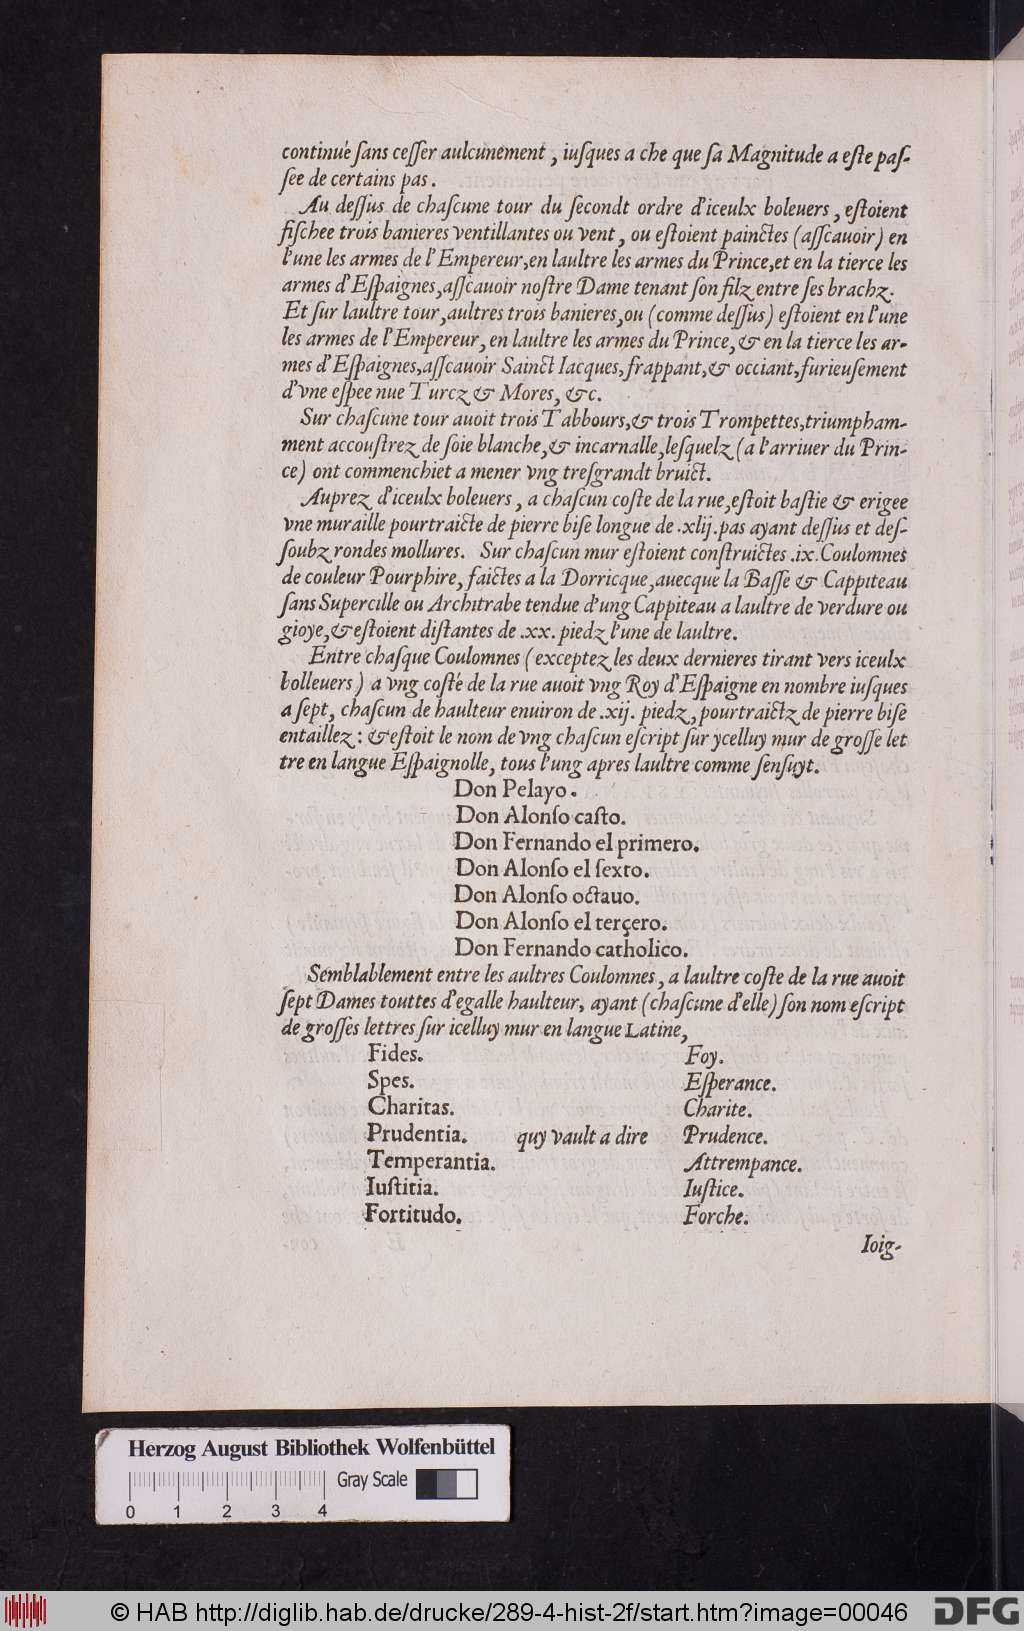 continué ſans ceſſer aulcunement, iuſques a che que ſa Magnitude a eſte paſ-
ſee de certains pas.
Au deſſus de chaſcune tour du ſecondt ordre d'iceulx boleuers, eſtoient
fiſchee trois banieres ventillantes ou vent, ou eſtoient painctes (aſſcauoir) en
l'une les armes de l'Empereur,en laultre les armes du Prince,et en la tierce les
armes d'Eſpaignes,aſſcauoir noſtre Dame tenant ſon filz entre ſes brachz.
Et ſur laultre tour,aultres trois banieres,ou (comme deſſus) eſtoient en l'une
les armes de l'Empereur, en laultre les armes du Prince,& en la tierce les ar-
mes d'Eſpaignes,aſſcauoir Sainct Iacques,frappant,& occiant,furieuſement
d'vne eſpee nue Turcz & Mores, &c.
Sur chaſcune tour auoit trois Tabbours,& trois Trompettes,triumpham-
ment accouſtrez de ſoie blanche,& incarnalle,leſquelz (a l'arriuer du Prin-
ce) ont commenchiet a mener vng treſgrandt bruict.
Auprez d'iceulx boleuers, a chaſcun coſte de la rue,eſtoit baſtie & erigee
vne muraille pourtraicte de pierre biſe longue de .xlij.pas ayant deſſus et deſ-
ſoubz rondes mollures. Sur chaſcun mur eſtoient conſtruictes .ix.Coulomnes
de couleur Pourphire, faictes a la Dorricque,auecque la Baſſe & Cappiteau
ſans Supercille ou Architrabe tendue d'ung Cappiteau a laultre de verdure ou
gioye,& eſtoient diſtantes de .xx. piedz l'une de laultre.
Entre chaſque Coulomnes (exceptez les deux dernieres tirant vers iceulx
bolleuers) a vng coſté de la rue auoit vng Roy d'Eſpaigne en nombre iuſques
a ſept, chaſcun de haulteur enuiron de .xij. piedz, pourtraictz de pierre biſe
entaillez: & eſtoit le nom de vng chaſcun eſcript ſur ycelluy mur de groſſe let
tre en langue Eſpaignolle, tous l'ung apres laultre comme ſenſuyt.
Don Pelayo.
Don Alonſo caſto.
Don Fernando el primero.
Don Alonſo el ſexto.
Don Alonſo octauo.
Don Alonſo el terçero.
Don Fernando catholico.
Semblablement entre les aultres Coulomnes, a laultre coſte de la rue auoit
ſept Dames touttes d'egalle haulteur, ayant (chaſcune d'elle) ſon nom eſcript
de groſſes lettres ſur icelluy mur en langue Latine,
Fides. Foy.
Spes. Eſperance.
Charitas. Charite.
Prudentia. quy vault a dire Prudence.
Temperantia. Attrempance.
Iuſtitia. Iuſtice.
Fortitudo. Forche.
Ioig-
Herzog August Bibliothek Wolfenbüttel
Gray Scale
0 1 2 3 4
© HAB http://diglib.hab.de/drucke/289-4-hist-2f/start.htm?image=00046 DFG